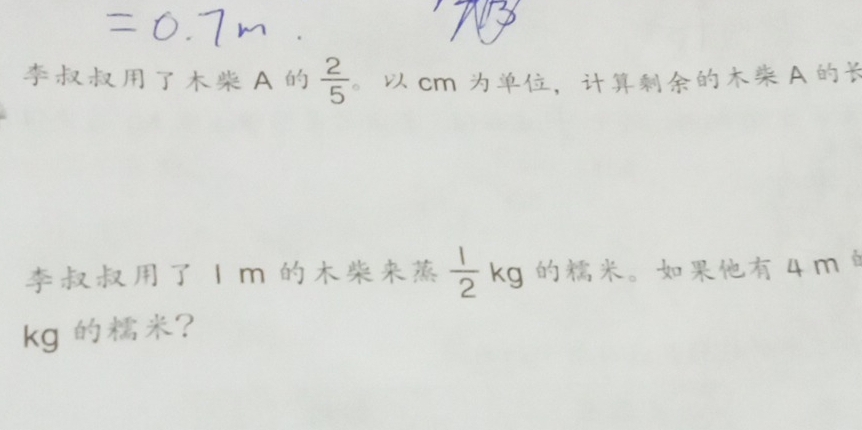 = 0.7m.
李叔叔用了木柴 A 的 2/5。以 cm 为单位，计算剩余的木柴 A 的长
李叔叔用了 1 m 的木柴来蒸 1/2 kg 的糯米。如果他有 4 m
kg 的糯米？